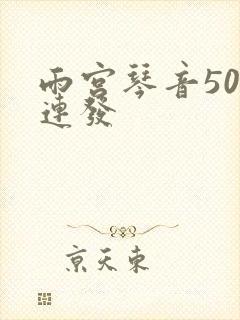 雨宮琴音50
連發
京天東